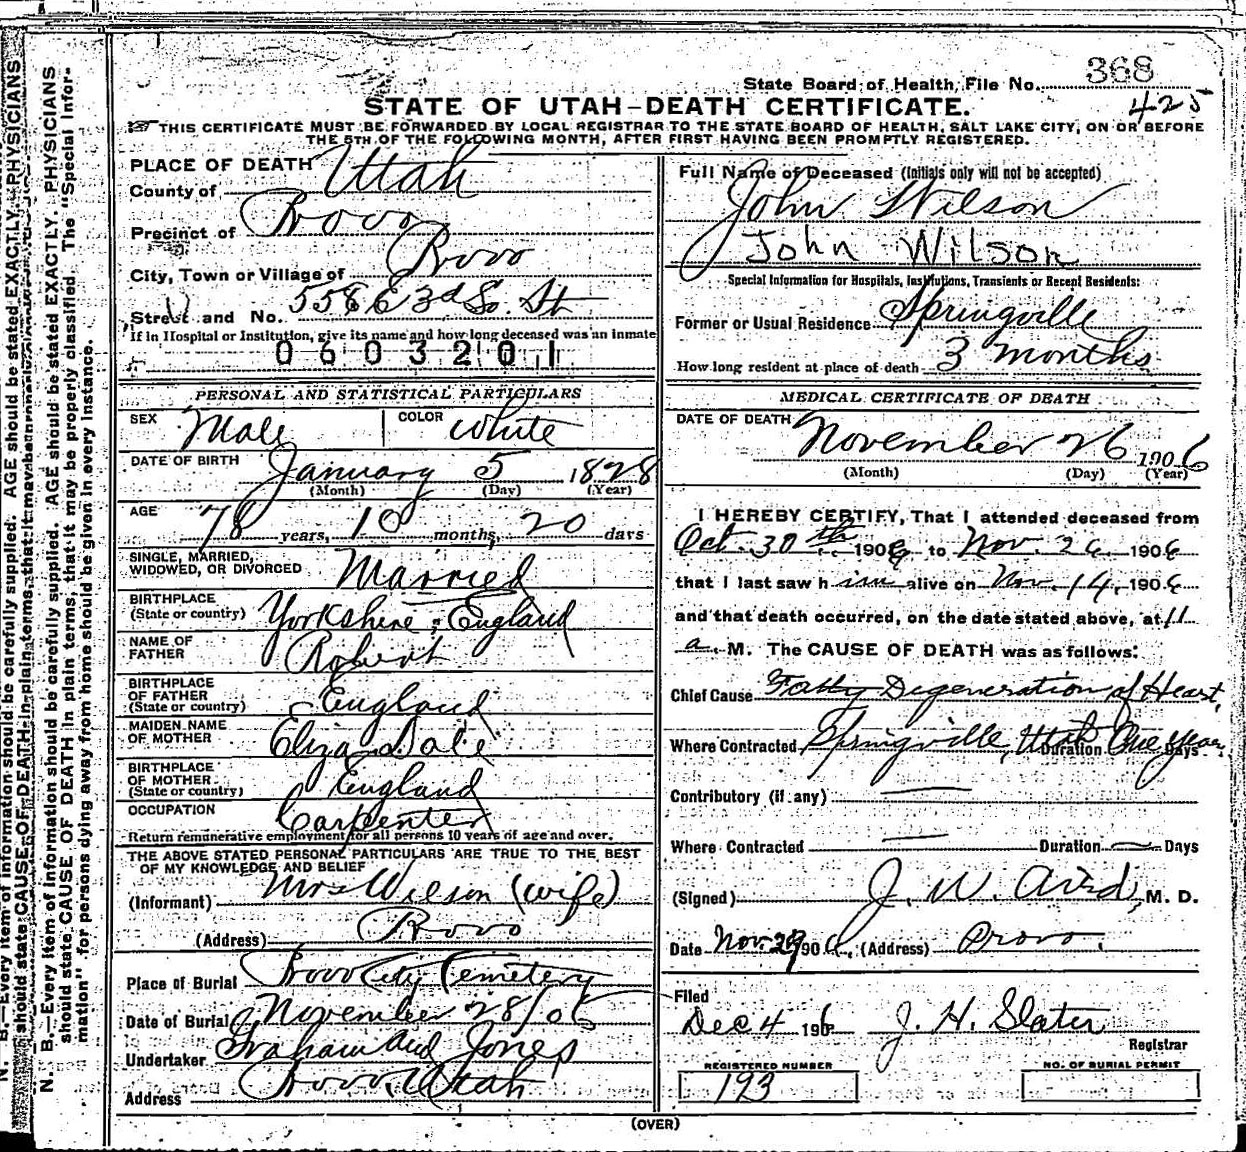 State Board of Health, File No. 368
425
STATE OF UTAH—DEATH CERTIFICATE.
THIS CERTIFICATE MUST BE FORWARDED BY LOCAL REGISTRAR TO THE STATE BOARD OF HEALTH, SALT LAKE CITY, ON OR BEFORE
THE 5TH OF THE FOLLOWING MONTH, AFTER FIRST HAVING BEEN PROMPTLY REGISTERED.
PLACE OF DEATH
County of Utah
Precinct of Provo
City, Town or Village of Provo
Street and No. 558 E 3d So. St
If in Hospital or Institution, give its name and how long deceased was an inmate
0603201
Full Name of Deceased (Initials only will not be accepted)
John Wilson
John Wilson
Special Information for Hospitals, Institutions, Transients or Recent Residents:
Former or Usual Residence Springville
How long resident at place of death 3 months
PERSONAL AND STATISTICAL PARTICULARS
SEX Male COLOR White
DATE OF BIRTH January 5 1828
(Month) (Day) (Year)
AGE 78 years, 10 months, 20 days
SINGLE, MARRIED,
WIDOWED, OR DIVORCED Married
BIRTHPLACE
(State or country) Yorkshire, England
NAME OF
FATHER Robert
BIRTHPLACE
OF FATHER
(State or country) England
MAIDEN NAME
OF MOTHER Eliza Dale
BIRTHPLACE
OF MOTHER
(State or country) England
OCCUPATION Carpenter
Return remunerative employment for all persons 10 years of age and over.
THE ABOVE STATED PERSONAL PARTICULARS ARE TRUE TO THE BEST
OF MY KNOWLEDGE AND BELIEF
(Informant) Mrs Wilson (wife)
(Address) Provo
Place of Burial Provo City Cemetery
Date of Burial November 28/06
Undertaker Graham and Jones
Address Provo, Utah
MEDICAL CERTIFICATE OF DEATH
DATE OF DEATH November 26 1906
(Month) (Day) (Year)
I HEREBY CERTIFY, That I attended deceased from
Oct. 30th 1906 to Nov. 26 1906
that I last saw him alive on Nov. 14, 1906
and that death occurred, on the date stated above, at 11
a. M. The CAUSE OF DEATH was as follows:
Chief Cause Fatty Degeneration of Heart,
Where Contracted Springville, Utah Duration One year Days
Contributory (if any)
Where Contracted Duration Days
(Signed) J. W. Aird, M. D.
Date Nov. 29 1906, (Address) Provo.
Filed
Dec 4 1906 J. H. Slater
Registrar
REGISTERED NUMBER
193
NO. OF BURIAL PERMIT
(OVER)
N. B.—Every item of information should be carefully supplied. AGE should be stated EXACTLY. PHYSICIANS
should state CAUSE OF DEATH in plain terms, that it may be properly classified. The "Special Infor-
mation" for persons dying away from home should be given in every instance.
N. B.—Every item of information should be carefully supplied. AGE should be stated EXACTLY. PHYSICIANS
should state CAUSE OF DEATH in plain terms, that it may be